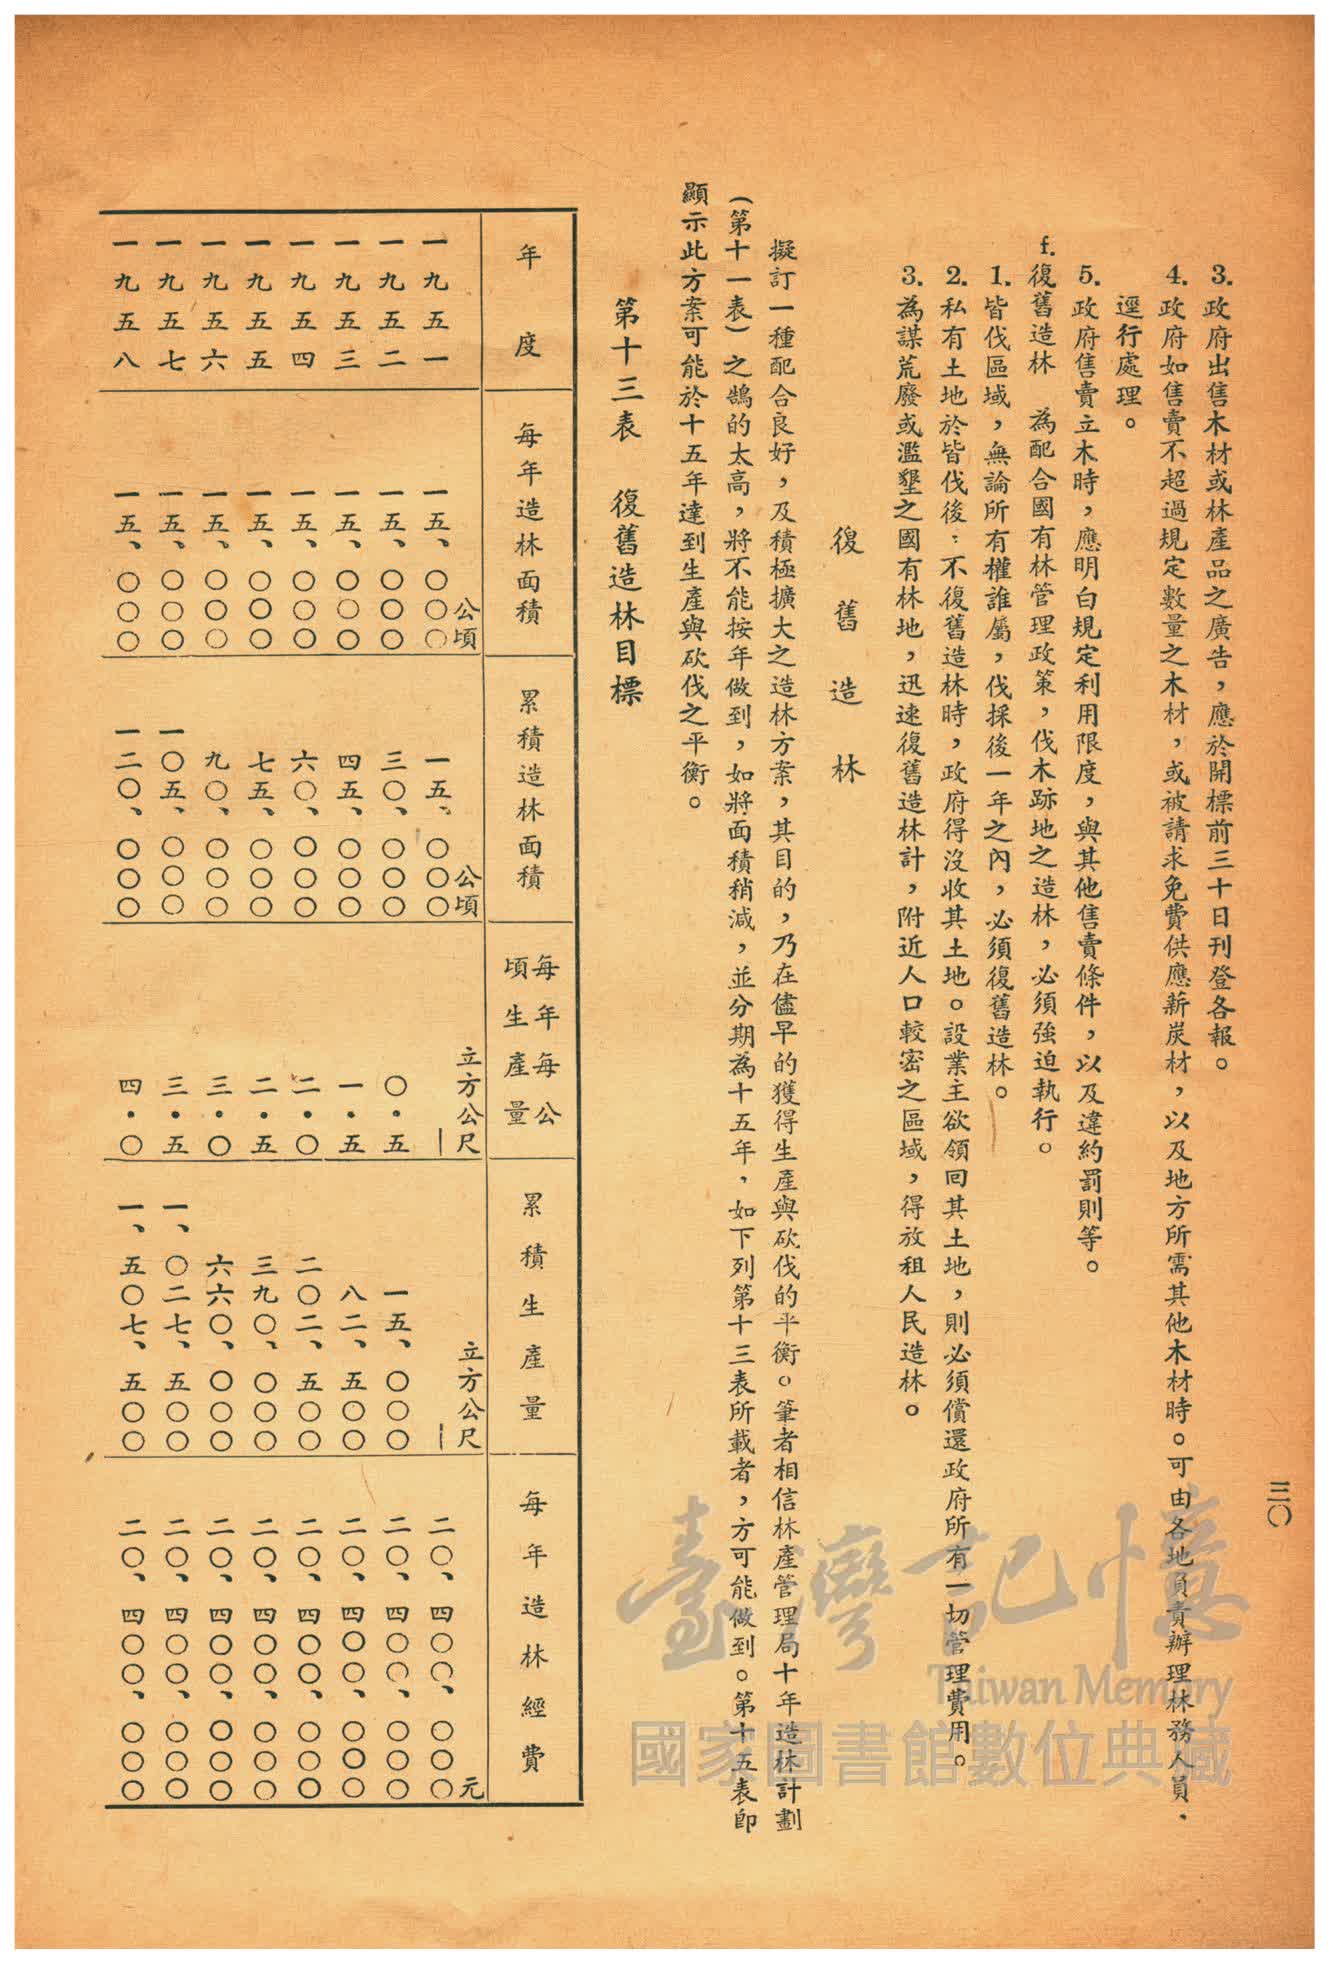 三〇
3. 政府出售木材或林產品之廣告，應於開標前三十日刊登各報。
4. 政府如售賣不超過規定數量之木材，或被請求免費供應薪炭材，以及地方所需其他木材時。可由各地負責辦理林務人員，
逕行處理。
5. 政府售賣立木時，應明白規定利用限度，與其他售賣條件，以及違約罰則等。
f. 復舊造林　為配合國有林管理政策，伐木跡地之造林，必須強迫執行。
1. 皆伐區域，無論所有權誰屬，伐採後一年之內，必須復舊造林。
2. 私有土地於皆伐後：不復舊造林時，政府得沒收其土地。設業主欲領回其土地，則必須償還政府所有一切管理費用。
3. 為謀荒廢或濫墾之國有林地，迅速復舊造林計，附近人口較密之區域，得放租人民造林。
復舊造林
擬訂一種配合良好，及積極擴大之造林方案，其目的，乃在儘早的獲得生產與砍伐的平衡。筆者相信林產管理局十年造林計劃
（第十一表）之鵠的太高，將不能按年做到，如將面積稍減，並分期為十五年，如下列第十三表所載者，方可能做到。第十五表即
顯示此方案可能於十五年達到生產與砍伐之平衡。
第十三表　復舊造林目標
年度　每年造林面積　累積造林面積　每年每公頃生產量　累積生產量　每年造林經費
公頃　公頃　立方公尺　立方公尺　元
一九五一　一五、〇〇〇　一五、〇〇〇　—　—　二〇、四〇〇、〇〇〇
一九五二　一五、〇〇〇　三〇、〇〇〇　〇·五　一五、〇〇〇　二〇、四〇〇、〇〇〇
一九五三　一五、〇〇〇　四五、〇〇〇　一·五　八二、五〇〇　二〇、四〇〇、〇〇〇
一九五四　一五、〇〇〇　六〇、〇〇〇　二·〇　二〇二、五〇〇　二〇、四〇〇、〇〇〇
一九五五　一五、〇〇〇　七五、〇〇〇　二·五　三九〇、〇〇〇　二〇、四〇〇、〇〇〇
一九五六　一五、〇〇〇　九〇、〇〇〇　三·〇　六六〇、〇〇〇　二〇、四〇〇、〇〇〇
一九五七　一五、〇〇〇　一〇五、〇〇〇　三·五　一、〇二七、五〇〇　二〇、四〇〇、〇〇〇
一九五八　一五、〇〇〇　一二〇、〇〇〇　四·〇　一、五〇七、五〇〇　二〇、四〇〇、〇〇〇
臺灣記憶
Taiwan Memory
國家圖書館數位典藏